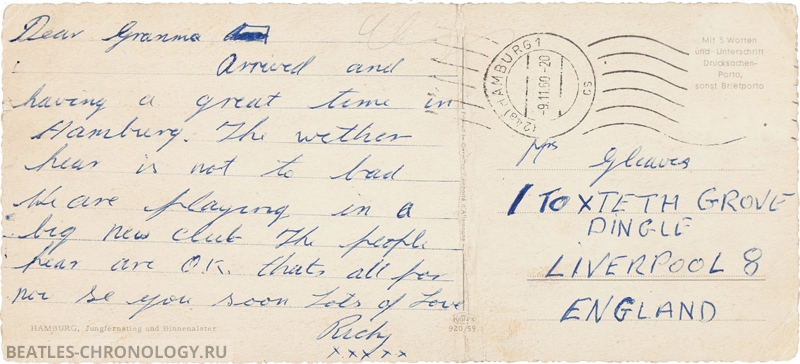 Dear Granma
Arrived and
having a great time in
Hamburg. The wether
hear is not to bad
We are playing in a
big new club The people
hear are O.K. thats all for
now se you soon Lots of Love
Richy
xxxxx
HAMBURG, Jungfernstieg und Binnenalster
920/59
(24a) HAMBURG 1
-9.11.60-20
sg
Mit 5 Worten
und Unterschrift
Drucksachen-
Porto,
sonst Briefporto
Mrs Gleaves
1 TOXTETH GROVE
DINGLE
LIVERPOOL 8
ENGLAND
BEATLES-CHRONOLOGY.RU